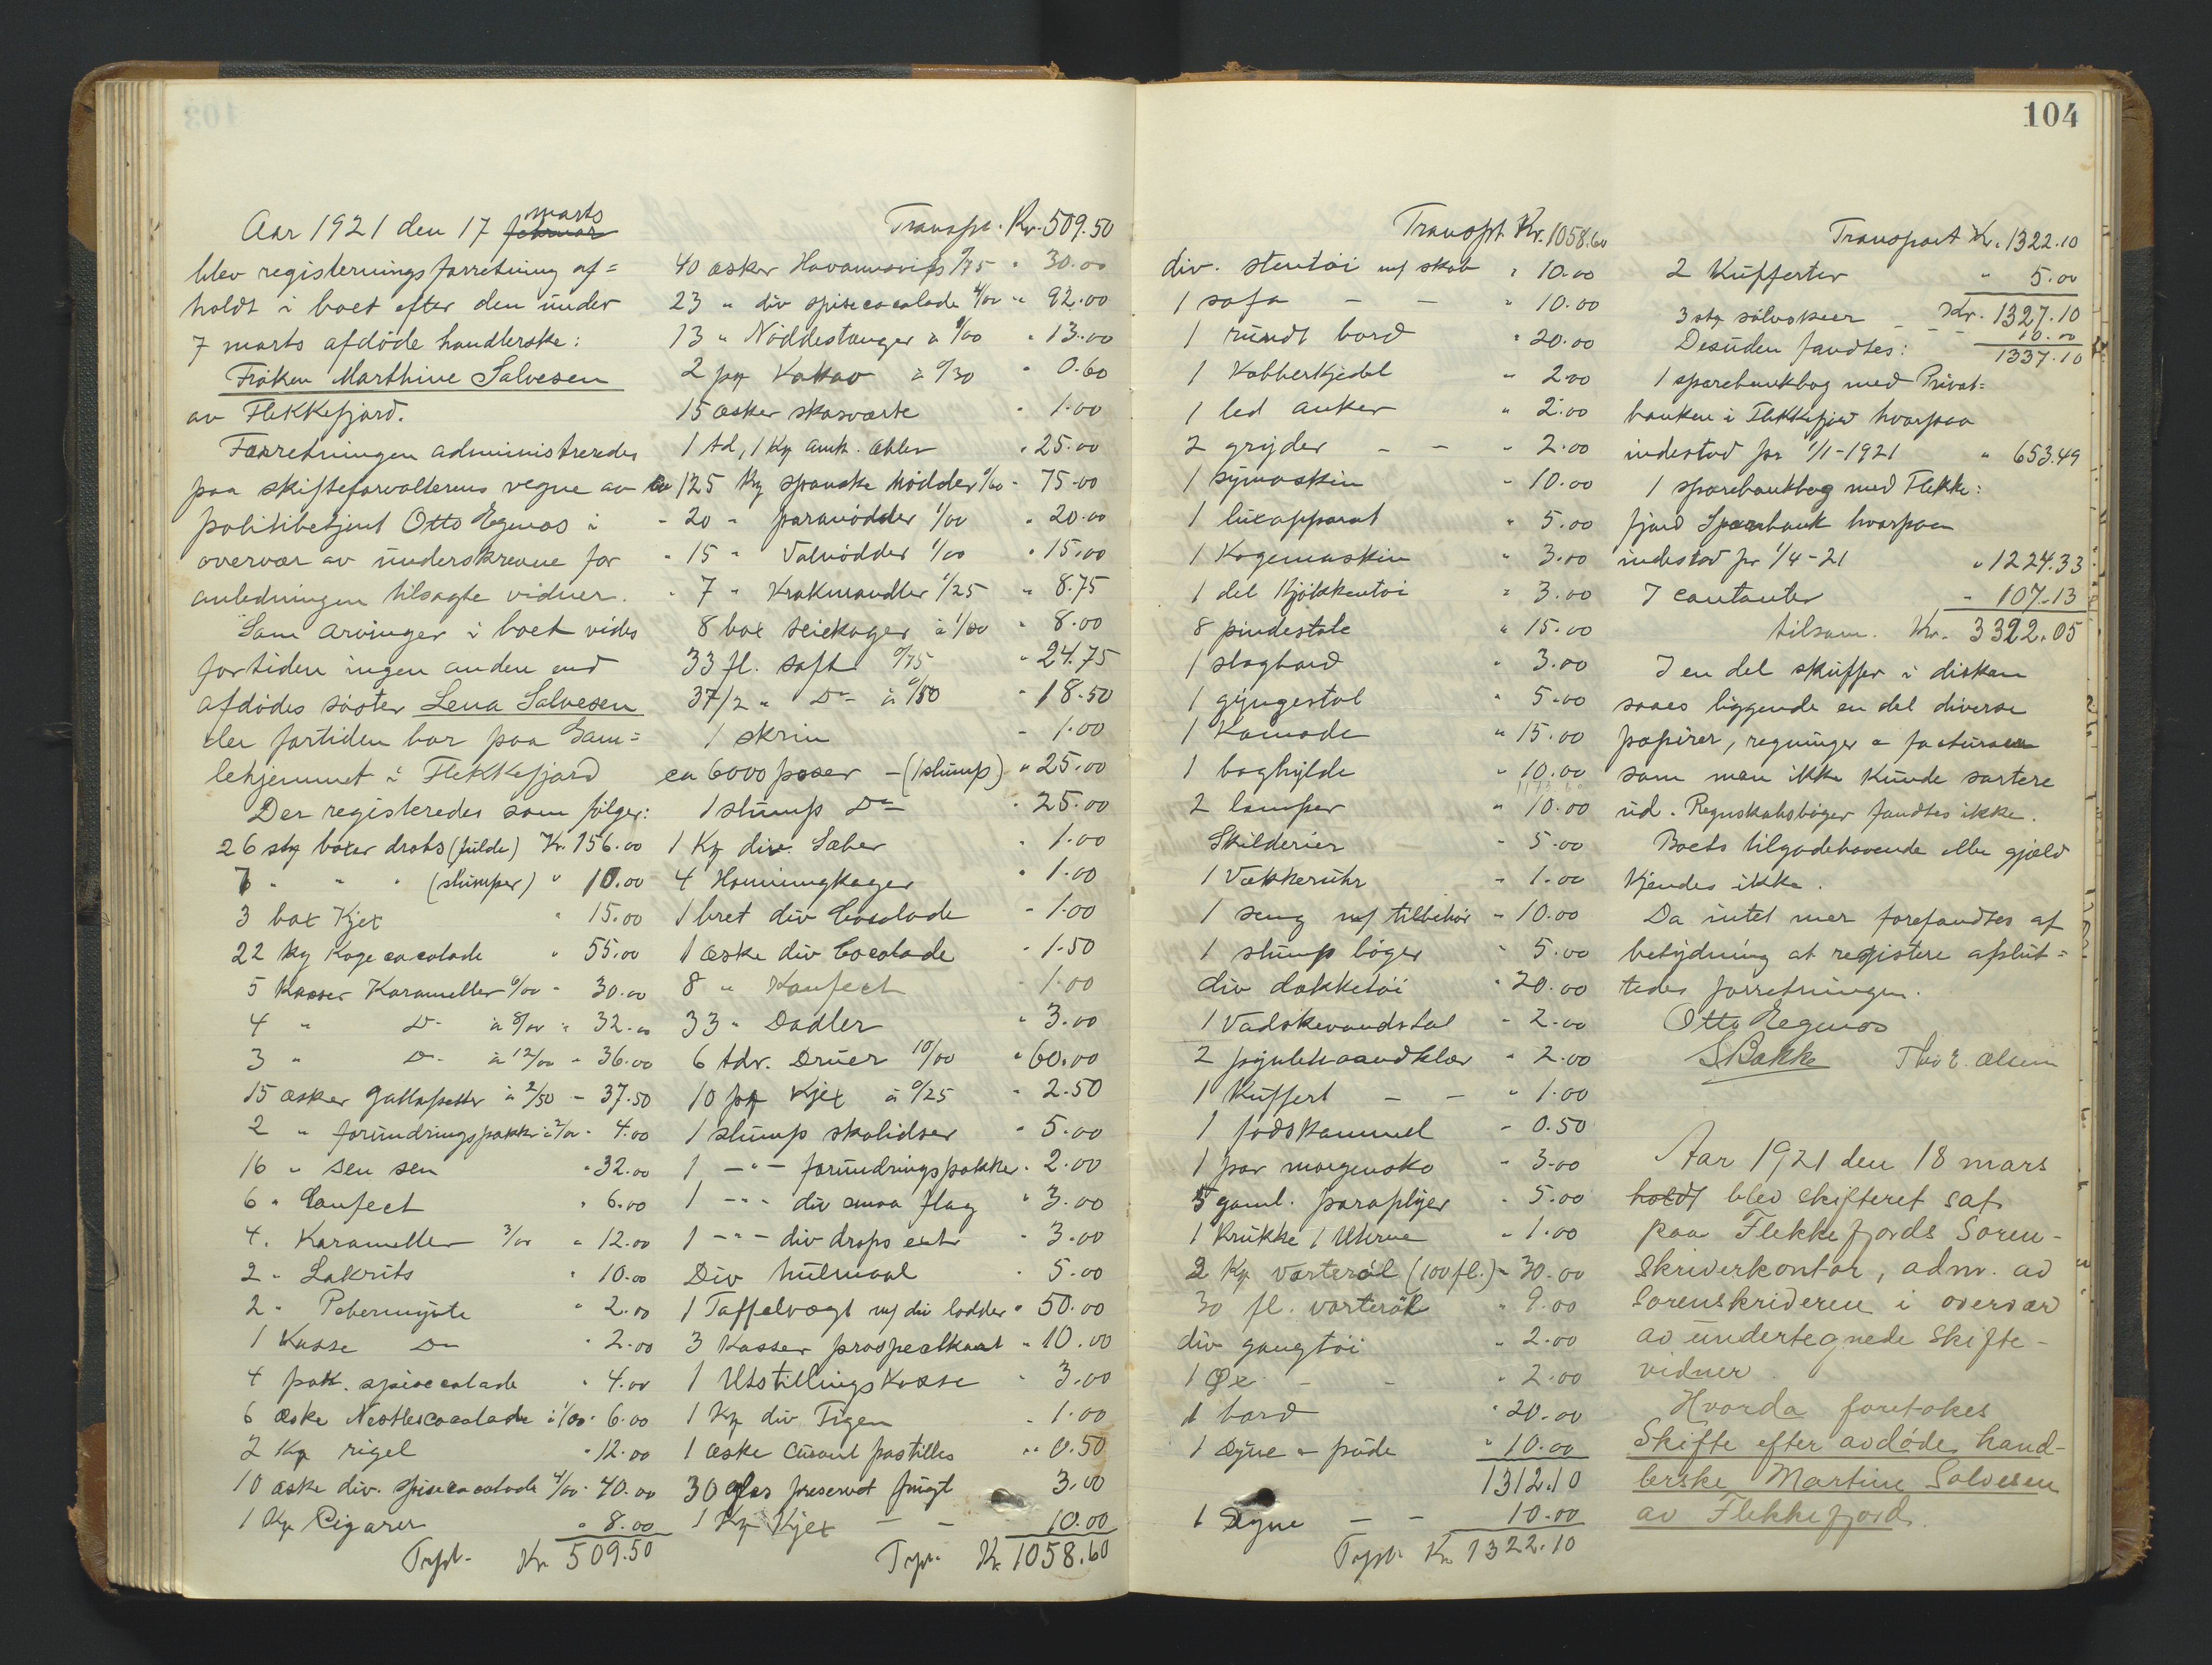 104
Aar 1921 den 17 februar marts
blev registerningsforretning af=
holdt i boet efter den under
7 marts afdöde handlerske:
Fröken Marthine Salvesen
av Flekkefjord.
Forretningen administreredes
paa skifteforvalterens vegne av
politibetjent Otto Egenæs i
overvær av underskrevne for
anledningen tilsagte vidner.
Som arvinger i boet vides
fortiden ingen anden end
afdödes söster Lena Salvesen
der fortiden bor paa Gam=
lehjemmet i Flekkefjord
Der registeredes som fölger:
26 stg boxer drops (fulde) Kr. 156.00
7 " " " (slumper) " 10.00
3 box Kjex " 15.00
22 kg Koge cocolade " 55.00
5 kasser Karameller 6/00 " 30.00
4 " Do à 8/00 " 32.00
3 " Do à 12/00 " 36.00
15 æsker à 2/50 " 37.50
2 " forundringspakker à 2/00 " 4.00
16 " sen sen " 32.00
6 " Confect " 6.00
4 " Karameller 3/00 " 12.00
2 " Lakrits " 10.00
2 " Pebermynte " 2.00
1 Kasse Do " 2.00
4 pak. spisecocolade " 4.00
6 æske Nestlescocolade à 1/00 " 6.00
2 Kg rigel " 12.00
10 æske div. spisecocolade 4/00 " 40.00
1 Kg Cigarer " 8.00
Trpt. Kr 509.50
Transpt. Kr. 509.50
40 æsker 0/75 " 30.00
23 " div spisecocolade 4/00 " 92.00
13 " Nöddestænger à 1/00 " 13.00
2 pg Kakao à 0/30 " 0.60
15 æsker skosværte " 1.00
1 td, 1 Kg amk. æbler " 25.00
ca 125 kg spanske nödder 0/60 " 75.00
" 20 " paranödder 1/00 " 20.00
" 15 " Valnödder 1/00 " 15.00
" 7 " Krakmandler 1/25 " 8.75
8 box à 1/00 " 8.00
33 fl. saft 0/75 " 24.75
37/2 " Do à 0/50 " 18.50
1 skrin " 1.00
ca 6000 poser - (1 slump) " 25.00
1 slump Do " 25.00
1 Kg div. Sæber " 1.00
4 Honningkager " 1.00
1 bret div Cocolade " 1.00
1 æske div Cocolade " 1.50
8 " Konfect " 1.00
33 " Dadler " 3.00
6 tdr. Druer 10/00 " 60.00
10 pg Kjex à 0/25 " 2.50
1 slump skolidser " 5.00
1 -"- forundringspakker " 2.00
1 -"- div smaa flag " 3.00
1 -"- div drops " 3.00
Div hulmaal " 5.00
1 Taffelvægt m/ div lodder " 50.00
3 Kasser prospectkort " 10.00
1 Utstillingskasse " 3.00
1 Kg div Figen " 1.00
1 æske pastilles " 0.50
30 glas preservet frugt 3.00
1 Kg Kjex - - 10.00
Trpt. Kr. 1058.60
Transpt. Kr. 1058.60
div. stentöi m/ skab " 10.00
1 sofa - - " 10.00
1 rundt bord " 20.00
1 Kobberkjedel " 2.00
1 led anker " 2.00
2 gryder - - " 2.00
1 symaskin " 10.00
1 luxapparat " 5.00
1 Kogemaskin " 3.00
1 del Kjökkentöi " 3.00
8 pindestole " 15.00
1 slagbord " 3.00
1 gyngestol " 5.00
1 Komode " 15.00
1 boghylde " 10.00
2 lamper " 10.00
Skilderier " 5.00
1 Vækkeruhr " 1.00
1 seng m/ tilbehör " 10.00
1 slump böger " 5.00
div dækketöi " 20.00
1 Vadskevandstel " 2.00
2 pyntehaandklær " 2.00
1 Kuffert - - " 1.00
1 fodskammel " 0.50
1 par morgensko " 3.00
5 gaml. paraplyer " 5.00
1 Krukke 1 " 1.00
2 Kg vörteröl (100 fl.) " 30.00
30 fl. vörteröl " 9.00
div gangtöi " 2.00
1 Øx - - " 2.00
1 bord " 20.00
1 Dyne & pude " 10.00
1312.10
1 Dyne - - 10.00
Trpt. Kr 1322.10
Transport Kr. 1322.10
2 Kufferter " 5.00
Kr. 1327.10
3 stg sölvskeer - - - 10.00
1337.10
Desuden fandtes:
1 sparebankbog med Privat=
banken i Flekkefjord hvorpaa
indestod pr 1/1-1921 " 653.49
1 sparebankbog med Flekke=
fjord Sparebank hvorpaa
indestod pr 1/4-21 " 1224.33
I contanter " 107.13
tilsam. Kr. 3322.05
I en del skuffer i disken
saaes liggende en del diverse
papirer, regninger & facturaer
som man ikke kunde sortere
ud. Regnskabsböger fandtes ikke.
Boets tilgodehavende eller gjæld
kjendes ikke.
Da intet mer forefandtes af
betydning at registere afslut=
tedes forretningen.
Otto Egenæs
S Bakke Thv E. Olsen
Aar 1921 den 18 mars
holdt blev skifteret sat
paa Flekkefjords Soren-
skriverkontor, adm. av
sorenskriveren i overvær
av undertegnede skifte-
vidner.
Hvorda foretokes
Skifte efter avdöde hand-
lerske Martine Salvesen
av Flekkefjord.